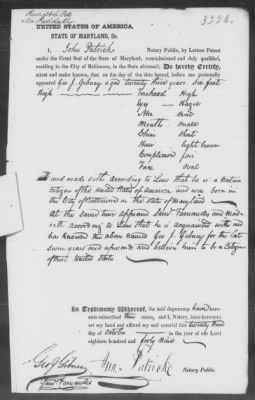 3224.
UNITED STATES OF AMERICA.
STATE OF MARYLAND, Sc.
I John Patrick Notary Public, by Letters Patent
under the Great Seal of the State of Maryland, commissioned and duly qualified,
residing in the City of Baltimore, in the State aforesaid, Do hereby Certify,
attest and make known, that on the day of the date hereof, before me personally
appeared Geo J. Gebney aged twenty three years, six feet
High Forehead High
Eyes Hazel
Nose
Mouth Small
Chin Short
Hair light brown
Complexion fair
Face Oval
and made oath according to Law that he is a Native
Citizen of the United States of America and was born in
the City of Baltimore in this State of Maryland
At the same time appeared and made
oath according to Law that he is acquainted with and
has known the above named Geo J. Gebney for the last
seven years and upwards and believes him to be a Citizen
of the United States
In Testimony Whereof, the said deponents have
unto subscribed their names, and I, Notary, have hereunto
set my hand and affixed my seal notarial this twenty third
day of October in the year of our Lord
eighteen hundred and forty nine
Geo J Gebney
Jno. Patrick
Notary Public.